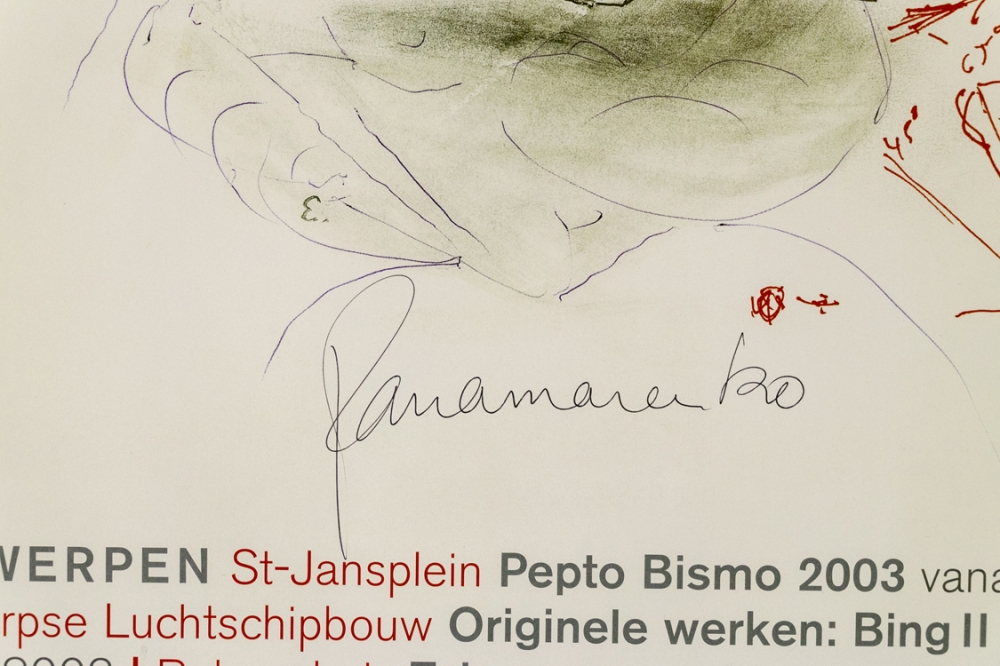 45°
Panamarenko
WERPEN St-Jansplein Pepto Bismo 2003 vana
rpse Luchtschipbouw Originele werken: Bing II